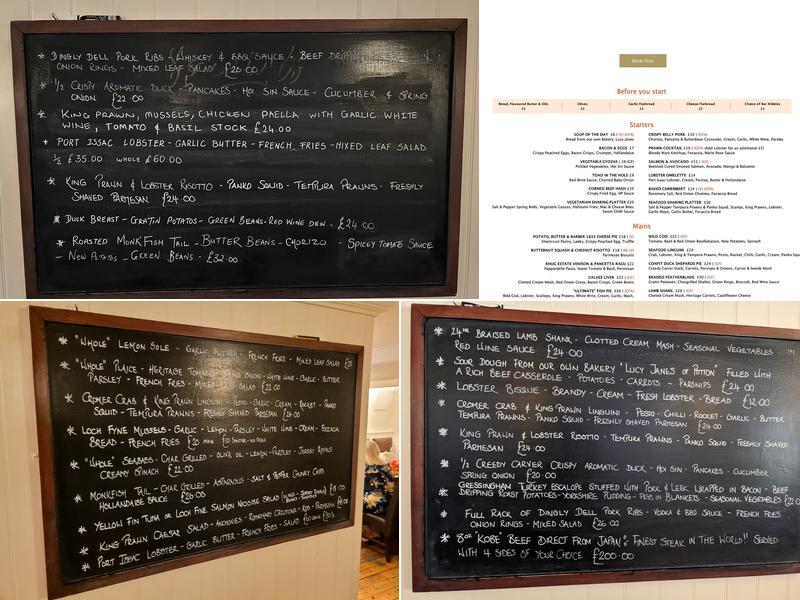 * DINGLY DELL PORK RIBS - WHISKEY & BBQ SAUCE - BEEF
ONION RINGS - MIXED LEAF SALAD £26.00
* 1/2 CRISPY AROMATIC DUCK - PANCAKES - HOI SIN SAUCE - CUCUMBER & SPRING
ONION £22.00
* KING PRAWN, MUSSELS, CHICKEN PAELLA WITH GARLIC WHITE
WINE, TOMATO & BASIL STOCK £24.00
* PORT ISSAC LOBSTER - GARLIC BUTTER - FRENCH FRIES - MIXED LEAF SALAD
1/2 £35.00 WHOLE £60.00
* KING PRAWN & LOBSTER RISOTTO - PANKO SQUID - TEMPURA PRAWNS - FRESHLY
SHAVED PARMESAN £24.00
* DUCK BREAST - GRATIN POTATOS - GREEN BEANS - RED WINE DEW - £24.00
* ROASTED MONKFISH TAIL - BUTTER BEANS - CHORIZO - SPICEY TOMATO SAUCE
- NEW POTATOES - GREEN BEANS - £32.00
Book Now
Before you start
Bread, Flavoured Butter & Oils
Olives
Garlic Flatbread
Cheese Flatbread
Choice of Bar Nibbles
Starters
SOUP OF THE DAY £6 | (V) (GFA)
Bread from our own Bakery, Lucy Janes
BACON & EGGS £7
Crispy Poached Eggs, Bacon Crisps, Crumpet, Hollandaise
VEGETABLE GYOZAS | £9 (GF)
Pickled Vegetables, Hoi Sin Sauce
TOAD IN THE HOLE £9
Red Wine Sauce, Charred Baby Onion
CORNED BEEF HASH £10
Crispy Fried Egg, HP Sauce
VEGETARIAN SHARING PLATTER £20
Salt & Pepper Spring Rolls, Vegetable Gyozas, Halloumi Fries, Mac & Cheese Bites
Sweet Chilli Sauce
CRISPY BELLY PORK £10 | (GFA)
Chorizo, Pancetta & Butterbean Cassoulet, Cream, Garlic, White Wine, Parsley
PRAWN COCKTAIL £10 | (GFA) (Add Lobster for an additional £5)
Bloody Mary Ketchup, Focaccia, Marie Rose Sauce
SALMON & AVOCADO £11 | (GF)
Beetroot Cured Smoked Salmon, Avocado, Mango & Balsamic
LOBSTER OMELETTE £14
Port Isaac Lobster, Cream, Parsley, Butter & Hollandaise
BAKED CAMEMBERT £24 | (V) (GFA)
Rosemary Salt, Red Onion Chutney, Focaccia Bread
SEAFOOD SHARING PLATTER £30
Salt & Pepper Tempura Prawns & Panko Squid, Scampi, King Prawns, Lobster,
Garlic Mayo, Garlic Butter, Focaccia Bread
Mains
POTATO, BUTTER & BARBER 1833 CHEESE PIE £18 | (V)
Shortcrust Pastry, Leeks, Crispy Poached Egg, Truffle
BUTTERNUT SQUASH & CHESTNUT RISOTTO £18 | (V)
Parmesan Biscuits
RHUG ESTATE VENISON & PANCETTA RAGU £22
Pappardelle Pasta, Sweet Tomato & Basil, Parmesan
CALVES LIVER £22 | (GF)
Clotted Cream Mash, Red Onion Gravy, Bacon Crisps, Green Beans
"ULTIMATE" FISH PIE £26 | (GFA)
Wild Cod, Lobster, Scallops, King Prawns, White Wine, Cream, Garlic, Mash,
WILD COD £22 | (GF)
Tomato, Basil & Red Onion Bouillabaisse, New Potatoes, Spinach
SEAFOOD LINGUINI £24
Crab, Lobster, King & Tempura Prawns, Pesto, Rocket, Chilli, Garlic, Cream, Panko Squid
CONFIT DUCK SHEPARDS PIE £24 | (GF)
Creedy Carver Duck, Carrots, Parsnips & Onions, Carrot & Swede Mash
BRAISED FEATHERBLADE £30 | (GF)
Gratin Potatoes, Chargrilled Shallot, Onion Rings, Broccoli, Red Wine Sauce
LAMB SHANK £28 | (GF)
Clotted Cream Mash, Heritage Carrots, Cauliflower Cheese
* "WHOLE" LEMON SOLE - GARLIC BUTTER - FRENCH FRIES - MIXED LEAF SALAD
* "WHOLE" PLAICE - HERITAGE TOMATO - SPRING ONION - WHITE WINE - GARLIC - BUTTER
PARSLEY - FRENCH FRIES - MIXED LEAF SALAD £22.00
* CROMER CRAB & KING PRAWN LINGUINI - PESTO - GARLIC - CREAM - ROCKET - PANKO
SQUID - TEMPURA PRAWNS - FRESHLY SHAVED PARMESAN £24.00
* LOCH FYNE MUSSELS - GARLIC - LEMON - PARSLEY - WHITE WINE - CREAM - FOCACIA
BREAD - FRENCH FRIES £20 MAIN £10 STARTER - NO FRIES
* "WHOLE" SEABASS - CHAR GRILLED - OLIVE OIL - LEMON - PARSLEY - JERSEY ROYALS
CREAMY SPINACH £22.00
* MONKFISH TAIL - CHAR GRILLED - ASPARAGUS - SALT & PEPPER CHUNKY CHIPS
HOLLANDAISE SAUCE £26.00
* YELLOW FIN TUNA OR LOCH FINE SALMON NICOISE SALAD
* KING PRAWN CAESAR SALAD - ANCHOVIES - ROSEMARY CROUTONS - COS - PARMESAN
* PORT ISSAC LOBSTER - GARLIC BUTTER - FRENCH FRIES - SALAD
* 24HR BRAISED LAMB SHANK - CLOTTED CREAM MASH - SEASONAL VEGETABLES
RED WINE SAUCE £24.00
* SOUR DOUGH FROM OUR OWN BAKERY 'LUCY JANES OF POTTON' FILLED WITH
A RICH BEEF CASSEROLE - POTATOES - CARROTS - PARSNIPS £24.00
* LOBSTER BISQUE - BRANDY - CREAM - FRESH LOBSTER - BREAD £12.00
* CROMER CRAB & KING PRAWN LINGUINI - PESTO - CHILLI - ROCKET - GARLIC - BUTTER
TEMPURA PRAWNS - PANKO SQUID - FRESHLY SHAVED PARMESAN £24.00
* KING PRAWN & LOBSTER RISOTTO - TEMPURA PRAWNS - PANKO SQUID - FRESHLY SHAVED
PARMESAN £24.00
* 1/2 CREEDY CARVER CRISPY AROMATIC DUCK - HOI SIN - PANCAKES - CUCUMBER
SPRING ONION £20.00
* GRESSINGHAM TURKEY ESCALOPE STUFFED WITH PORK & LEEK WRAPPED IN BACON - BEEF
DRIPPING ROAST POTATOES - YORKSHIRE PUDDING - PIGS IN BLANKETS - SEASONAL VEGETABLES
* FULL RACK OF DINGLY DELL PORK RIBS - VODKA & BBQ SAUCE - FRENCH FRIES
ONION RINGS - MIXED SALAD £26.00
* 8oz 'KOBE' BEEF DIRECT FROM JAPAN "FINEST STEAK IN THE WORLD!" SERVED
WITH 4 SIDES OF YOUR CHOICE £200.00